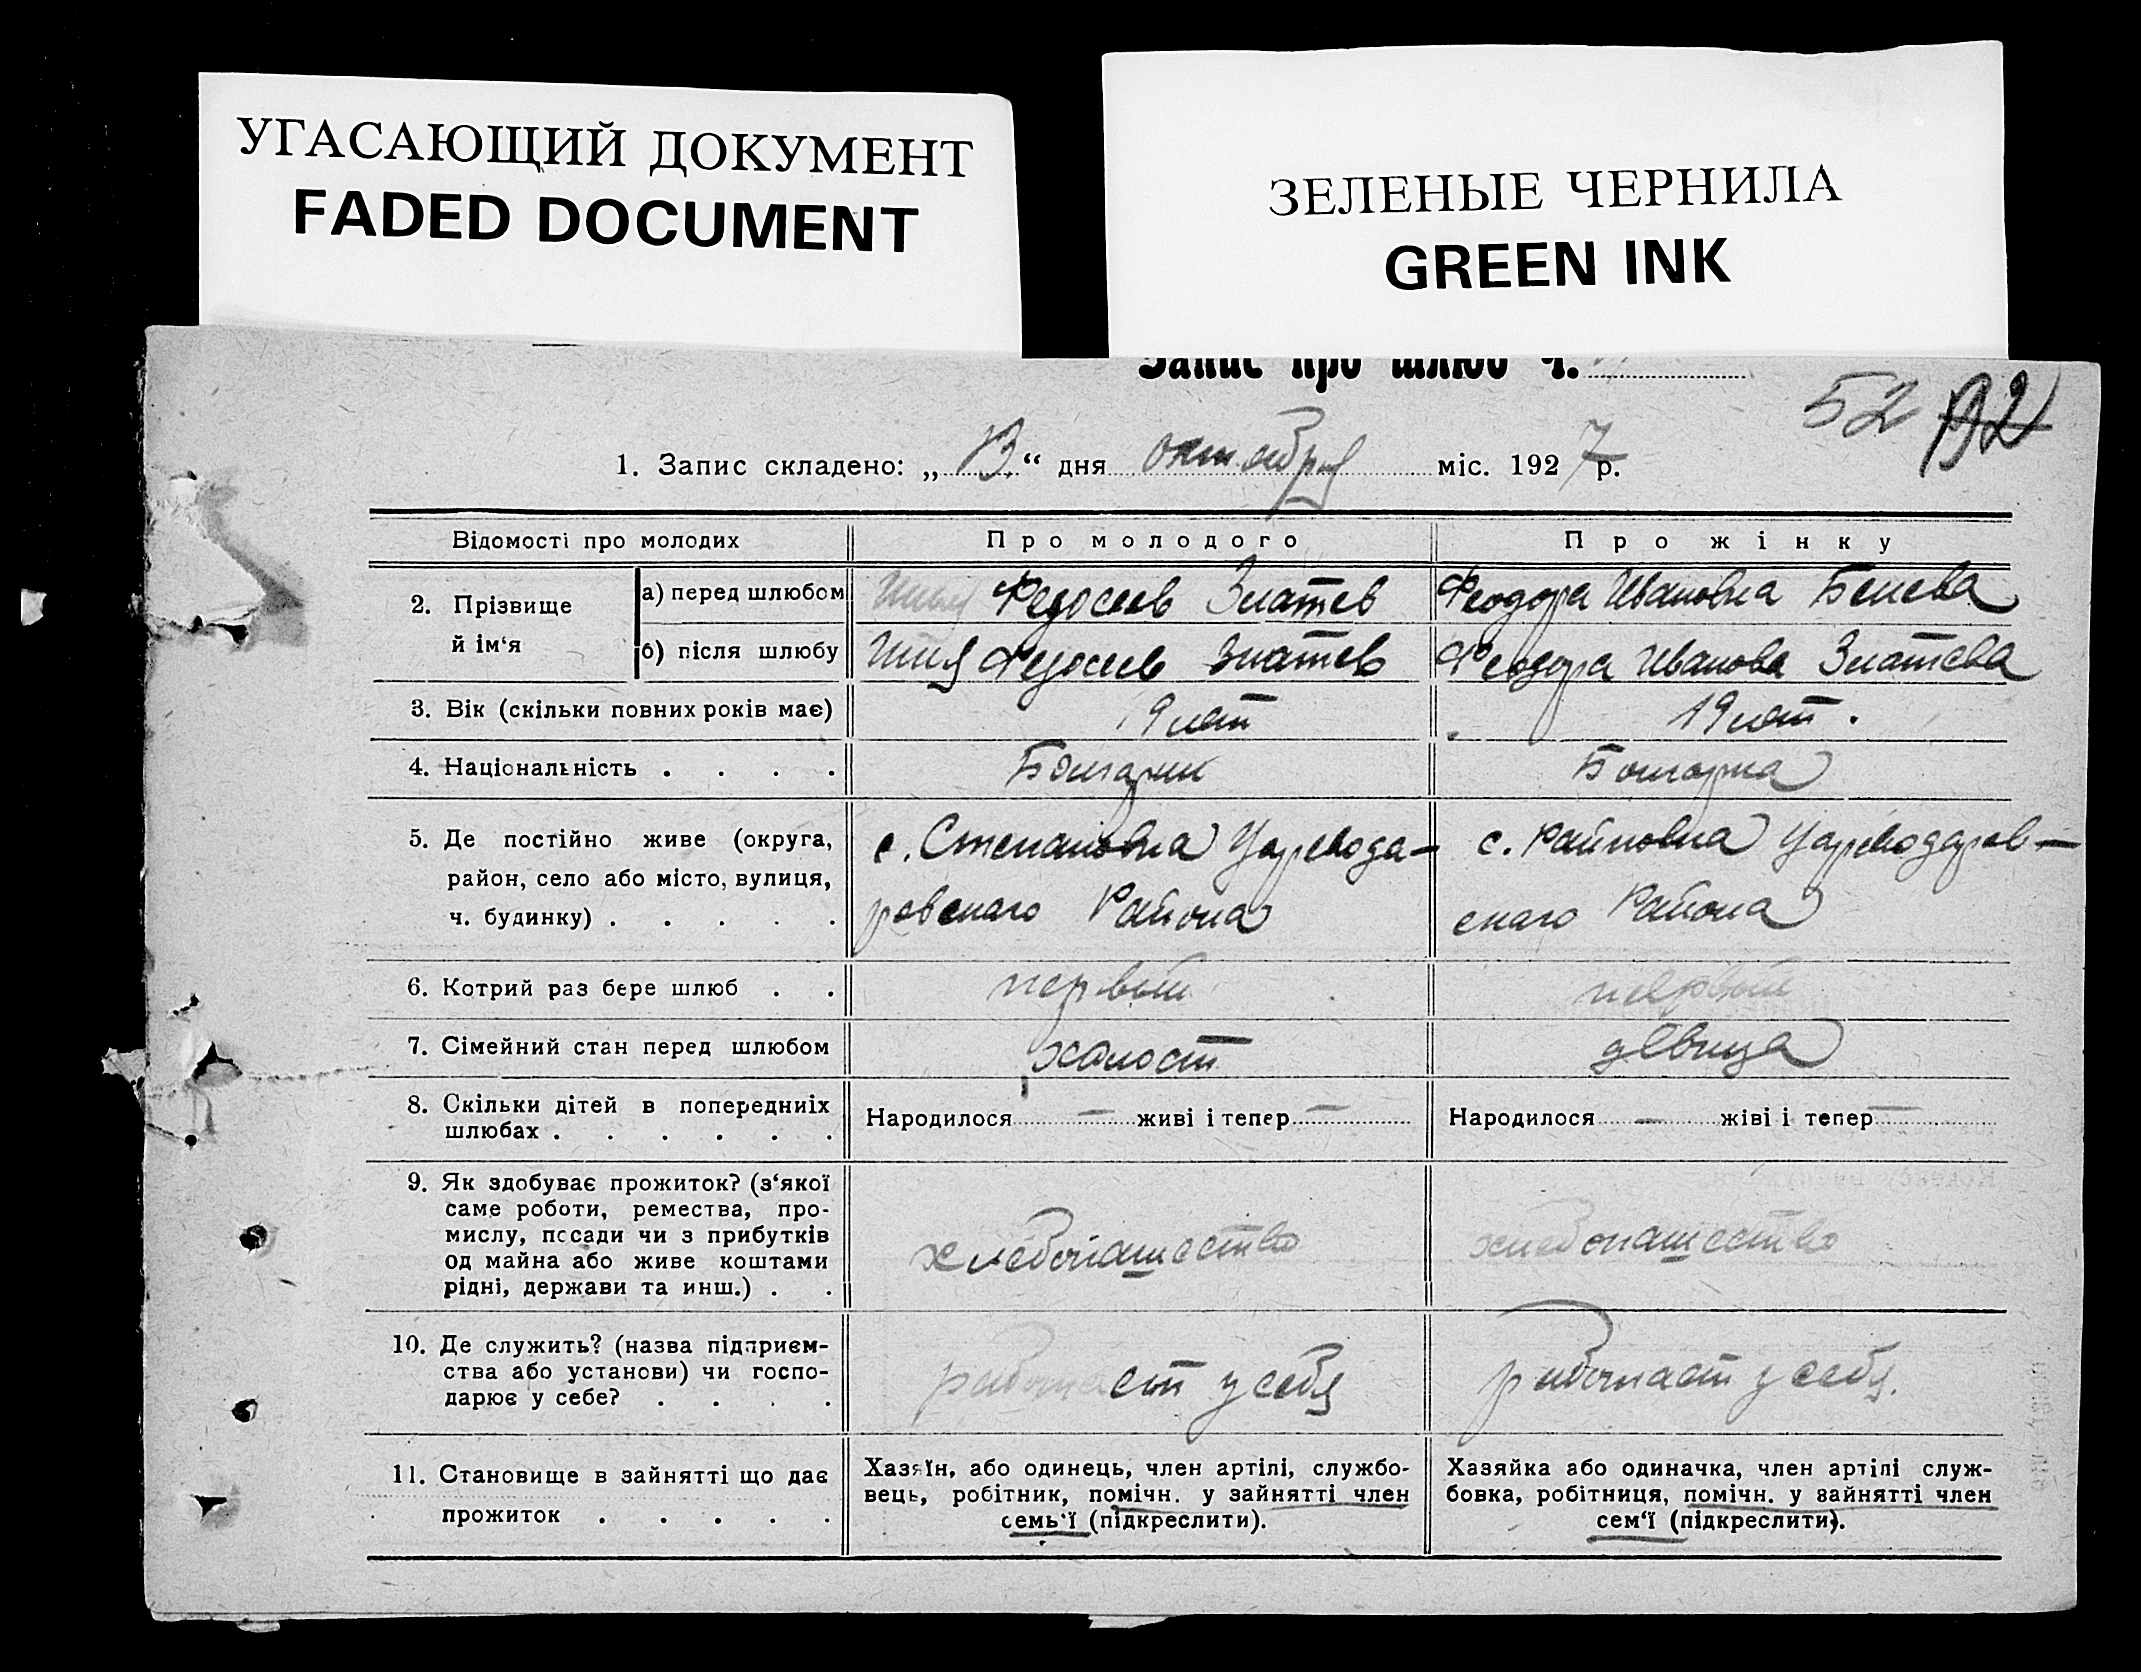 УГАСАЮЩИЙ ДОКУМЕНТ
FADED DOCUMENT
ЗЕЛЕНЫЕ ЧЕРНИЛА
GREEN INK
Запис про шлюб ч.
52 192
1. Запис складено: „13“ дня октября міс. 1927 р.
Відомості про молодих Про молодого Про жінку
2. Прізвище й ім‘я
а) перед шлюбом Илья Федосеев Златев Феодора Ивановна Бенева
б) після шлюбу Илия Федосеев Златев Феодора Иванова Златева
3. Вік (скільки повних років має) 19 лет 19 лет.
4. Національність . . . . Болгарин Болгарка
5. Де постійно живе (округа,
район, село або місто, вулиця,
ч. будинку) . . . . .
с. Степановка Царевода-
ровскаго Района
с. Райновка Цареводаров-
скаго Района
6. Котрий раз бере шлюб . . первый первый
7. Сімейний стан перед шлюбом холост девица
8. Скільки дітей в попередниіх
шлюбах . . . . . .
Народилося — живі і тепер —
Народилося — жіві і тепер —
9. Як здобуває прожиток? (з‘якої
саме роботи, ремества, про-
мислу, посади чи з прибутків
од майна або живе коштами
рідні, держави та инш.) . .
хлебопашество
хлебопашество
10. Де служить? (назва підприєм-
ства або установи) чи госпо-
дарює у себе? . . . .
работает у себя
работает у себя.
11. Становище в зайнятті що дає
прожиток . . . . .
Хазяїн, або одинець, член артілі, службо-
вець, робітник, помічн. у зайнятті член
семь‘ї (підкреслити).
Хазяйка або одиначка, член артілі служ-
бовка, робітниця, помічн. у зайнятті член
сем‘ї (підкреслити).